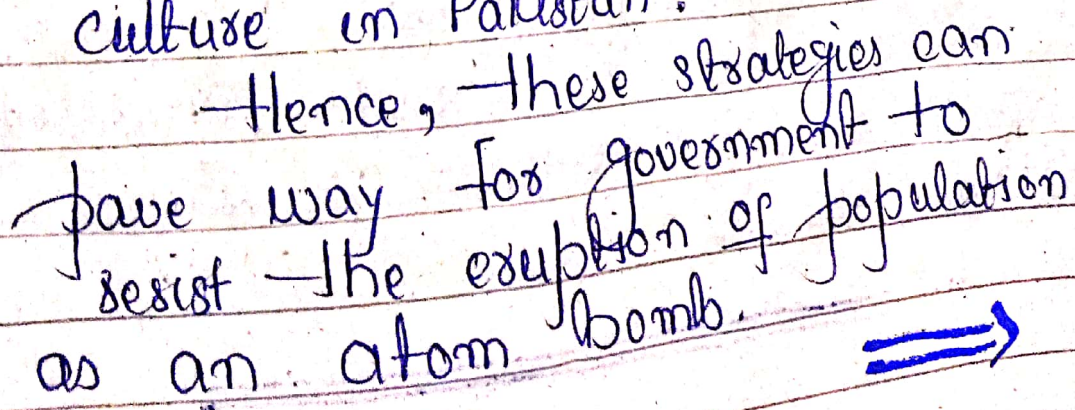 culture in Pakistan.
Hence, these strategies can
pave way for government to
resist the eruption of population
as an atom bomb.